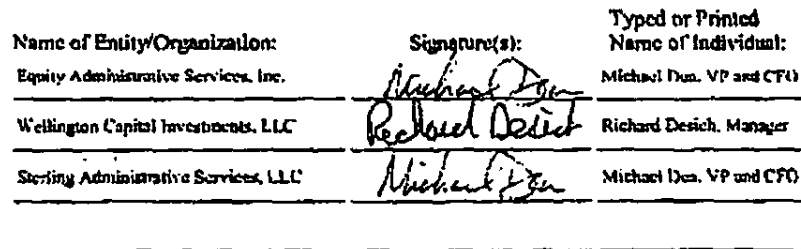 Typed or Printed
Name of Entity/Organization: Signature(s): Name of Individual:
Equity Administrative Services, Inc. Michael Dea Michael Dea, VP and CFO
Wellington Capital Investments, LLC Richard Desich Richard Desich, Manager
Sterling Administrative Services, LLC Michael Dea Michael Dea, VP and CFO